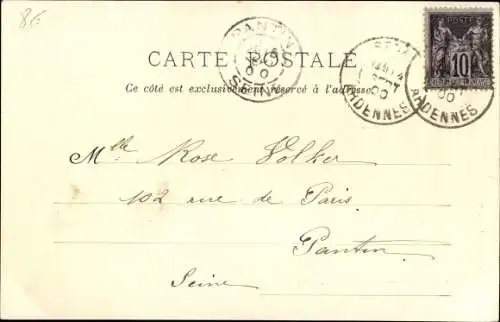 8£
PANTIN
CARTE POSTALE
Ce côté est exclusivement réservé à l'adresse.
POSTE
10
ARDENNES
ARDENNES
00
00
Mlle Rose Volker
102 rue de Paris
Pantin
Seine